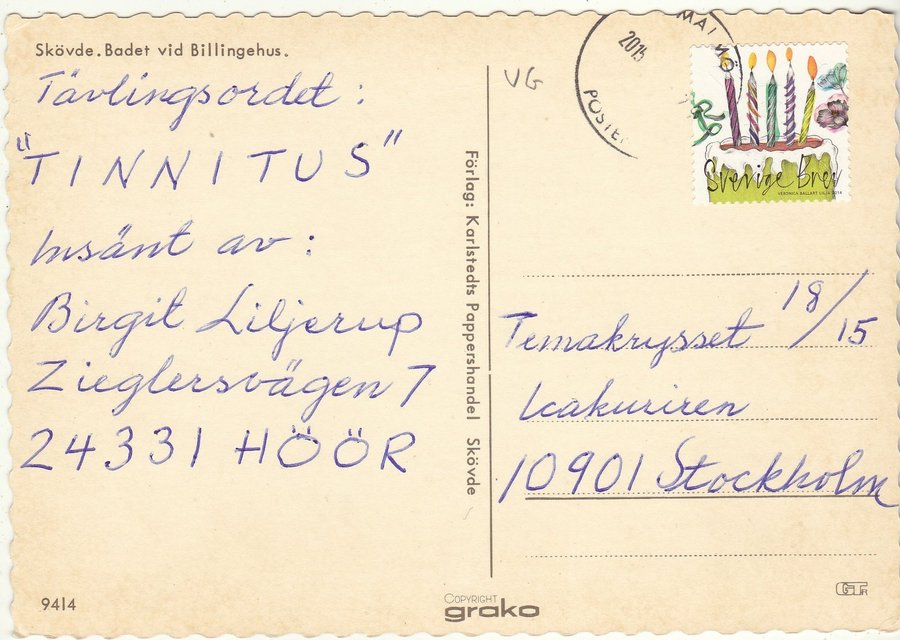 Skövde. Badet vid Billingehus.
Tävlingsordet :
"TINNITUS"
Insänt av :
Birgit Liljerup
Zieglersvägen 7
24331 HÖÖR
9414
Förlag: Karlstedts Pappershandel Skövde
COPYRIGHT
grako
VG
MALMÖ
2015
POSTEN
Sverige Brev
VERONICA BALLART LILJA 2014
Temakrysset 18/15
Icakuriren
10901 Stockholm